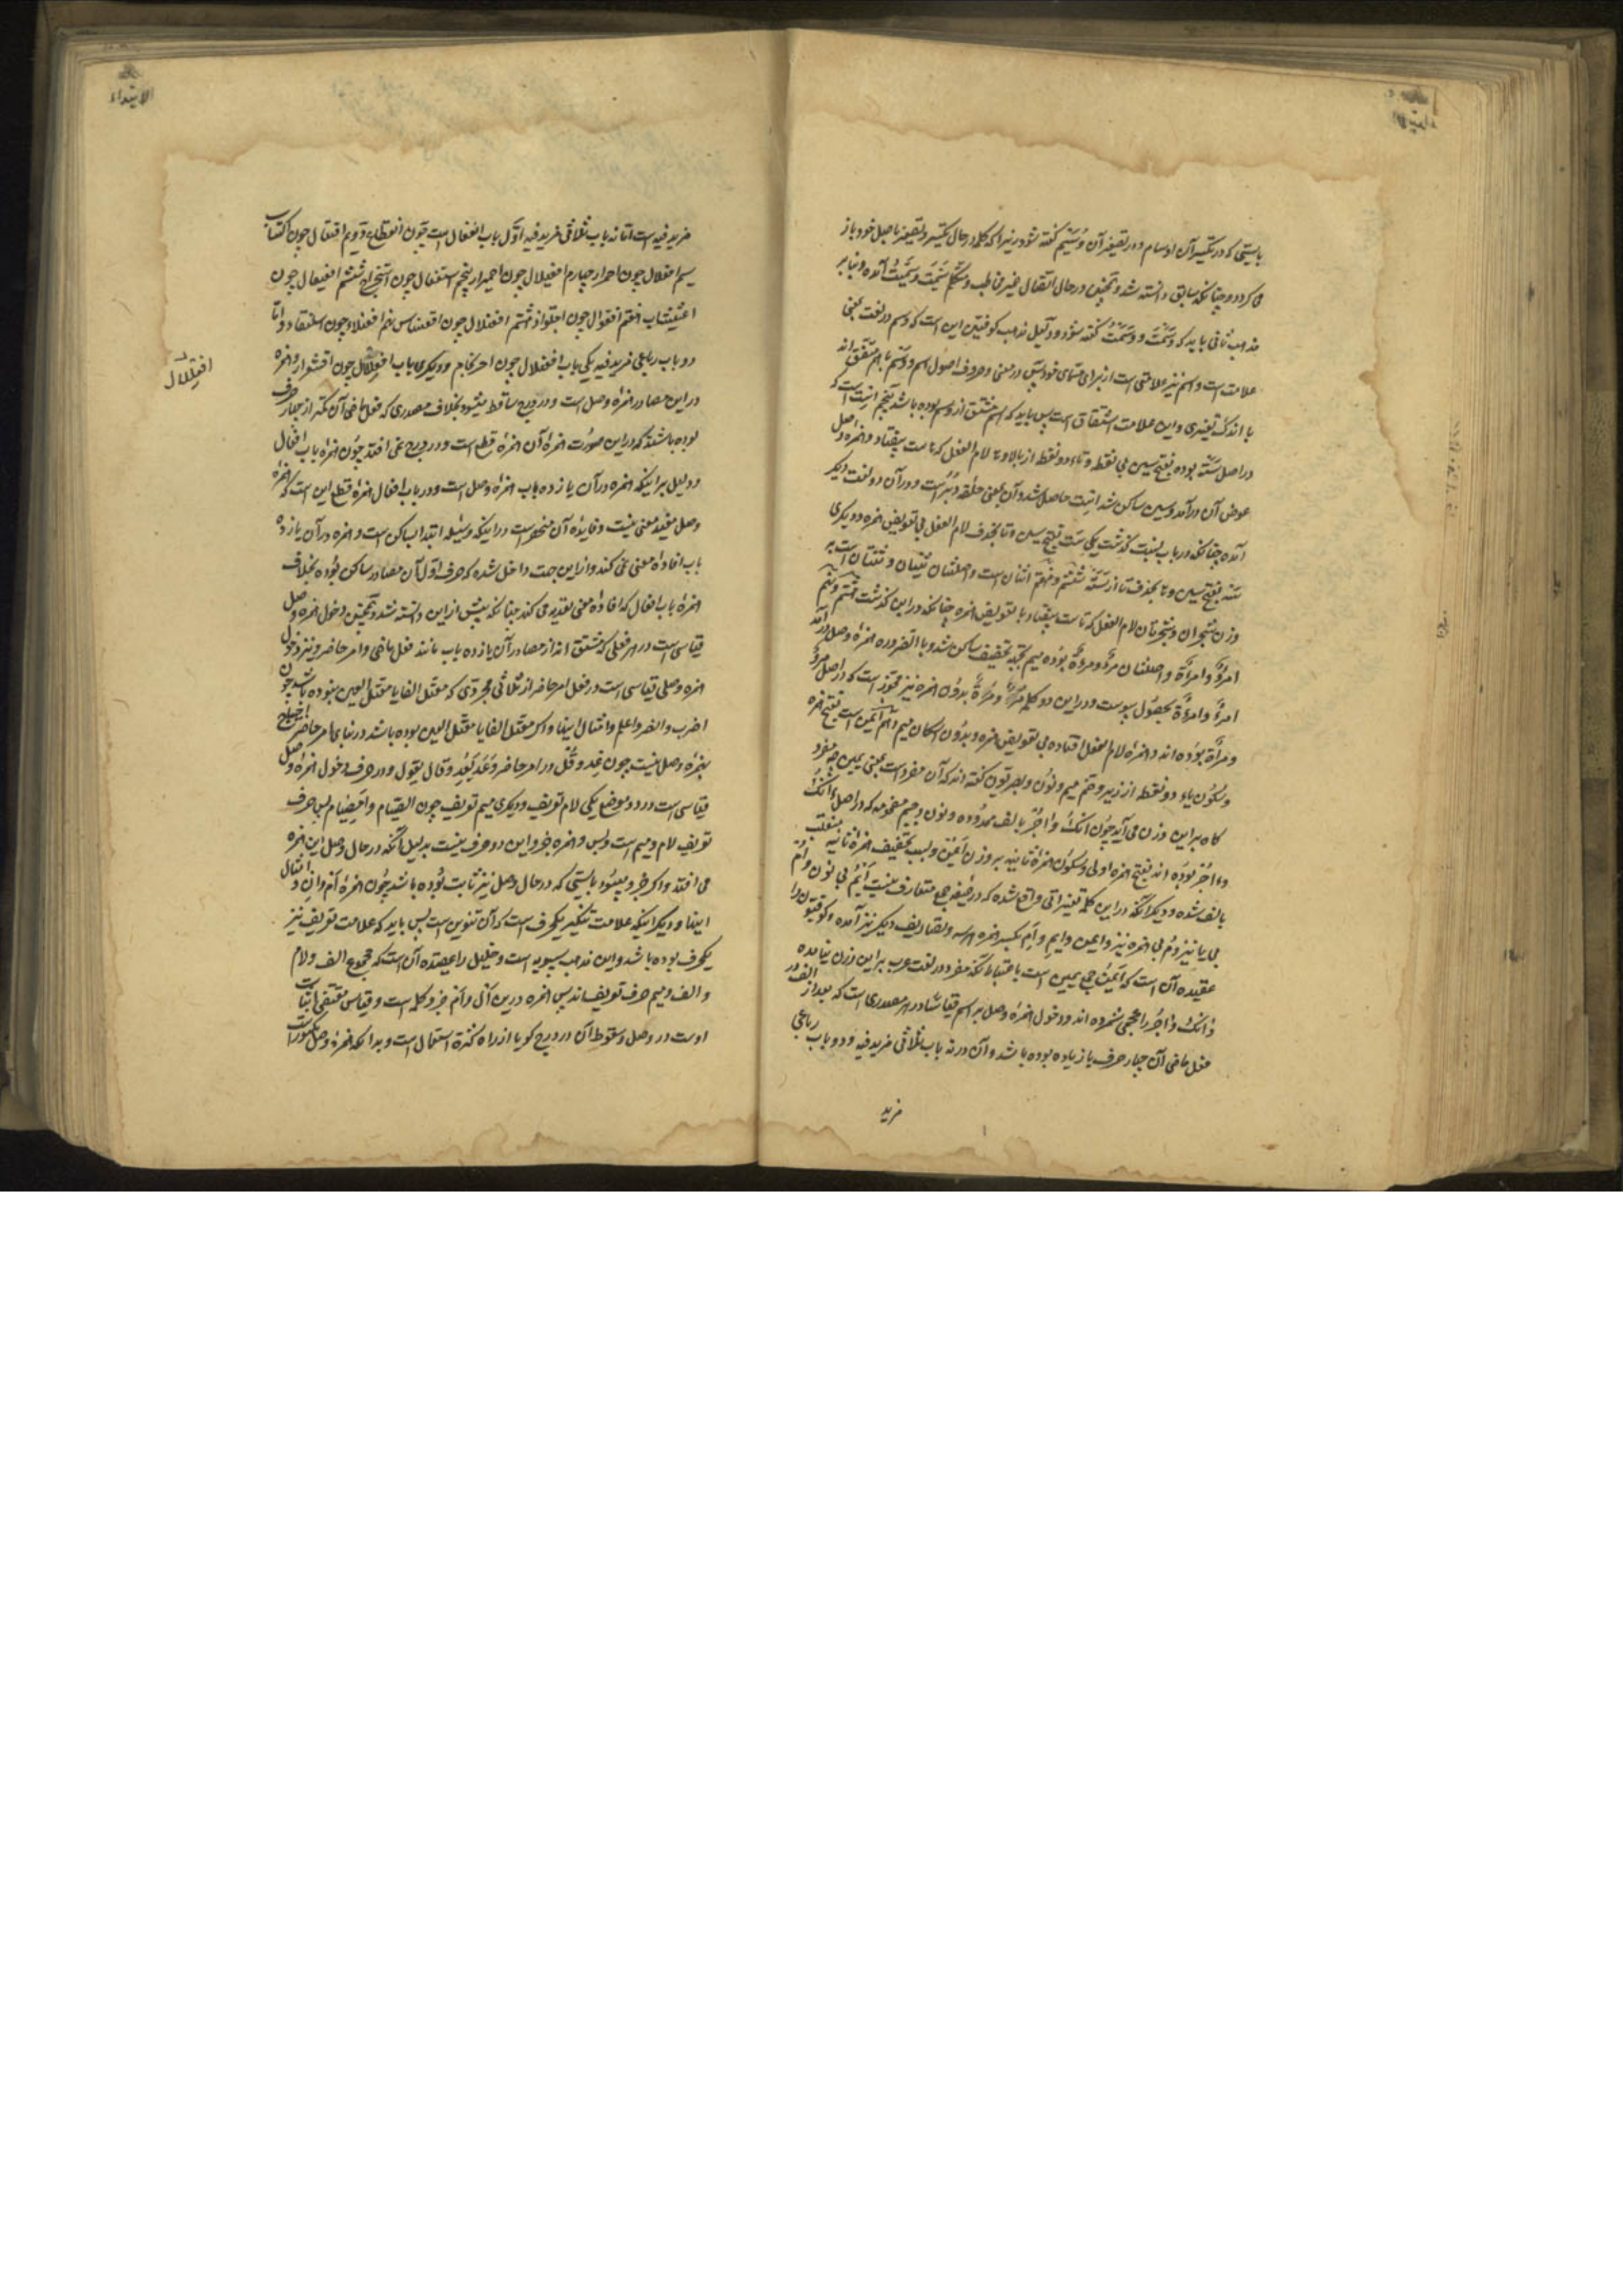 بایستی که در تکسیر آن اوسام و در تصغیر آن وُسَیْم گفته شود زیرا که کلمه در حال تکسیر و تصغیر باصل خود باز
می کردد چنانکه سابق دانسته شد و همچنین در حال اتصال ضمیر مخاطب و متکلم سَمَیْتَ و سَمَیْتُ آمده و بنابر
مذهب ثانی باید که وَسَمْتَ و وَسَمْتُ گفته شود و دلیل مذهب کوفیین این است که وسم در لغت بمعنی
علامت است و اسم نیز علامتی است از برای مسمای خود پس در معنی و حروف اصول اسم و وسم باهم متفق اند
با اندک تغییری و این علامت اشتقاق است پس باید که اسم مشتق از وسم بوده باشد پنجم اِست است که
در اصل سَتَه بوده بفتح سین بی نقطه و تاء دو نقطه از بالا و ها لام الفعل که هاست بیفتاد و همزه وصل
عوض آن درآمد و سین ساکن شد اِست حاصل شد و آن بمعنی حلقه دبر است و در آن دو لغت دیکر
آمده چنانکه در باب نسبت گذشت یکی سَت بفتح سین و تا بحذف لام الفعل بی تعویض همزه و دیکری
سَه بفتح سین و ها بحذف تا از سَتَه ششم و هفتم اثنان است و اثنتان ثَنَیان و ثنتان است بر
وزن شجران و شجرتان لام الفعل که یاست بیفتاد با تعویض همزه چنانکه در ابن گذشت هشتم و نهم
امرؤ و امرأة و اصلشان مرؤ و مرأة بوده میم بجهة تخفیف ساکن شد و بالضروره همزه وصل درآمد
امرؤ و امرأة بحصول پیوست و در این دو کلمه مَرْءٌ و مَرْأَةٌ بدون همزه نیز مجوز است که در اصل مرؤ
و مرأة بوده اند و همزه لام الفعل افتاده بی تعویض همزه و بدون اسکان میم دهم اَیْمُن است بفتح همزه
و سکون یاء دو نقطه از زیر و ضم میم و نون و بصریون گفته اند که آن مفرد است بمعنی یمین چه مفرد
گاه بر این وزن می آید چون آنُک و آجُر بالف ممدوده و نون و جیم مضمومه که در اصل ءَاْنُک
وءاجُر بوده اند بفتح همزه اولی و سکون همزه ثانیه بر وزن اَیْمُن و بسبب تخفیف همزه ثانیه منقلب
بالف شده و دیکر آنکه در این کلمه تغییراتی واقع شده که در صیغه جمع متعارف نیست اَیْمُ بی نون و اَمُ
بی یا نیز و مُ بی همزه نیز و ایمن و ایم و اِم بکسر همزه هر سه و تصاریف دیکر نیز آمده و کوفیون را
عقیده آن است که اَیْمُن جمع یمین است باعتبار آنکه مفرد در لغت عرب بر این وزن نیامده
و آنُک و آجُر را عجمی شمرده اند و دخول همزه وصل بر اسم قیاسا در هر مصدری است که بعد از الف در
فعل ماضی آن چهار حرف یا زیاده بوده باشد و آن در نه باب ثلاثی مزید فیه و دو باب رباعی
مزید
مزید فیه است اما نه باب ثلاثی مزید فیه اول باب انفعال است چون انقطاع دویم افتعال چون اکتساب
سیم افعلال چون احمرار چهارم افعیلال چون احمیرار پنجم استفعال چون استخراج ششم افعیعال چون
اعشیشاب هفتم افعوال چون اجلواذ هشتم افعنلال چون اقعنساس نهم افعنلاء چون اسلنقاء و اما
دو باب رباعی مزید فیه یکی باب افعنلال چون احرنجام و دیکری باب افعلّال چون اقشعرار و همزه
در این مصادر همزه وصل است و در درج ساقط میشود بخلاف مصدری که فعل ماضی آن کمتر از چهار حرف
بوده باشد که در این صورت همزه آن همزه قطع است و در درج نمی افتد چون همزه باب افعال
و دلیل بر اینکه همزه در آن یازده باب همزه وصل است و در باب افعال همزه قطع این است که همزه
وصل مفید معنی نیست و فایده آن منحصر است در اینکه وسیله ابتدا بساکن است و همزه در آن یازده
باب افاده معنی نمی کند و از این جهت داخل شده که حرف اول آن مصادر ساکن بوده بخلاف
همزه باب افعال که افاده معنی تعدیه می کند چنانکه پیش از این دانسته شد و همچنین دخول همزه وصل
قیاسی است در هر فعلی که مشتق اند از مصادر آن یازده باب مانند فعل ماضی و امر حاضر و نیز دخول
همزه وصلی قیاسی است در فعل امر حاضر از ثلاثی مجردی که معتل الفا یا معتل العین نبوده باشد چون
اضرب و انصر و اعلم و امثال اینها و اکر معتل الفا یا معتل العین بوده باشد در بنای امر حاضر احتیاج
بهمزه وصل نیست چون عِد و قُل در امر حاضر وَعَدَ یَعِد و قال یقول و در حرف دخول همزه وصل
قیاسی است در دو موضع یکی لام تعریف و دیکری میم تعریف چون الصیام و امصیام پس حرف
تعریف لام و میم است و بس و همزه جزو این دو حرف نیست بدلیل آنکه در حال وصل این همزه
می افتد و اکر جزو میبود بایستی که در حال وصل نیز ثابت بوده باشد چون همزه اَم و اِن و امثال
اینها و دیکر اینکه علامت تنکیر یکحرف است که آن تنوین است پس باید که علامت تعریف نیز
یکحرف بوده باشد و این مذهب سیبویه است و خلیل را عقیده آن است که مجموع الف و لام
و الف و میم حرف تعریف اند پس همزه در این اَل و اَم جزو کلمه است و قیاس مقتضی اثبات
اوست در وصل و سقوط آن در درج کویا از راه کثرة استعمال است و بدانکه همزه وصل مکسور است
افعلّال
الابتداء